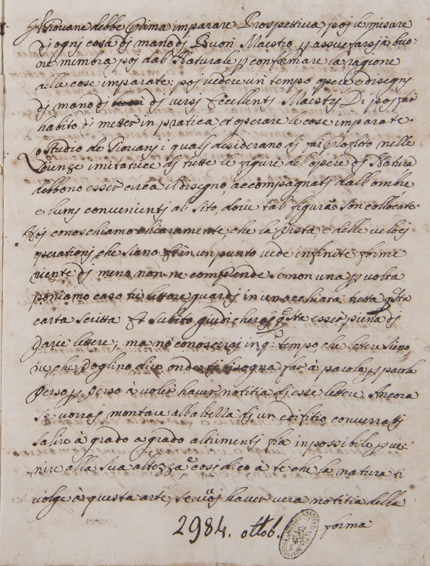 Il Giovane debbe prima imparare Prospettiva, poj le misure
di ogni cosa dj mano dj Buon Maestro p assuefarsi à buo-
ne membra poj dal Naturale p confermare la ragione
alle cose imparate, poj vedere un tempo opere e disegnj
dj mano dj diversj Eccellentj Maestrj Dj poj far
habito dj metter in prattica et operare le cose imparate.
Lo studio de Giovanj i qualj desiderano dj far profitto nelle
scienze imitatrice dj tutte le figure de opere dj Natura
debbono esser circa il disegno accompagnatj dall'ombre
e lumj convenientj al sito, dove talj figure son collocate
Noj conosciamo chiaramente che la vista e delle velocj
operationj che siano et in un punto vede infinite forme
niente dj meno non ne comprende se non una p volta
poniamo caso tu lettore guardj in un'occhiata tutta qsta
carta scritta et subito giudicheraj qsta esser piena dj
varie lettere; ma no conosceraj in qo tempo che lettere sieno
ne che voglino dire onde bisogna far à parola p parola
verso p verso à voler haver notitia dj esse lettere. Ancora
se vorraj montare all'altezza dj un edifitio converrattj
salire à grado a grado altrimentj fia impossibile pve-
nire alla sua altezza, e cosi dico à te che la natura ti
volge à questa arte, se vuoj haver vera notitia della
forma
2984. ottob.